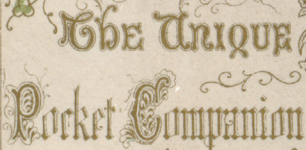 The Unique
Pocket Companion